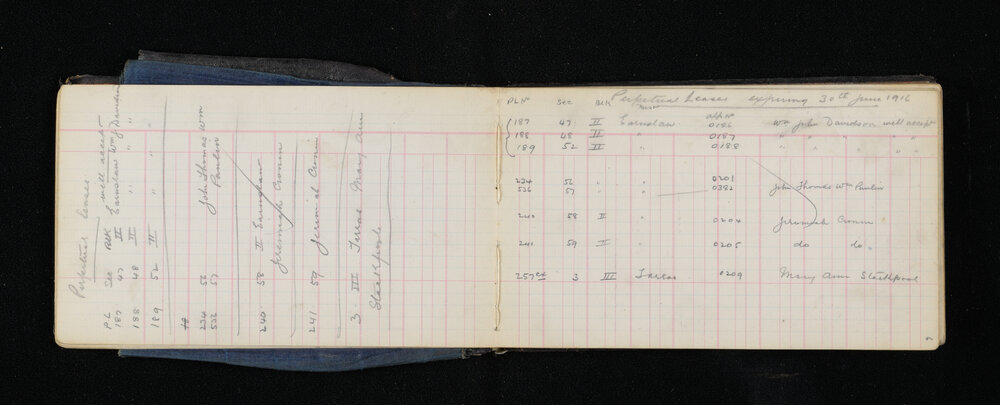 Perpetual Leases
P.L Sec Blk well accept
187 47 II Earnslaw Wm J Davidson
188 48 II " "
189 52 II " "
234 56 John Thomas Wm
536 57 Paulin
240 58 II Earnslaw Jeremiah Cronin
241 59 Jeremiah Cronin
3 III Tarras Mary Ann
Stackpoole
PL No Sec Blk Perpetual Leases expiring 30th June 1916
187 47 II Earnslaw 0186 Wm John Davidson will accept
188 48 II " 0187 " " " " "
189 52 II " 0188
234 56 " " 0201
536 57 " " 0382 John Thomas Wm Paulin
240 58 II " 0204 Jeremiah Cronin
241 59 II " 0205 do do "
257 3 III Tarras 0209 Mary Ann Stackpool